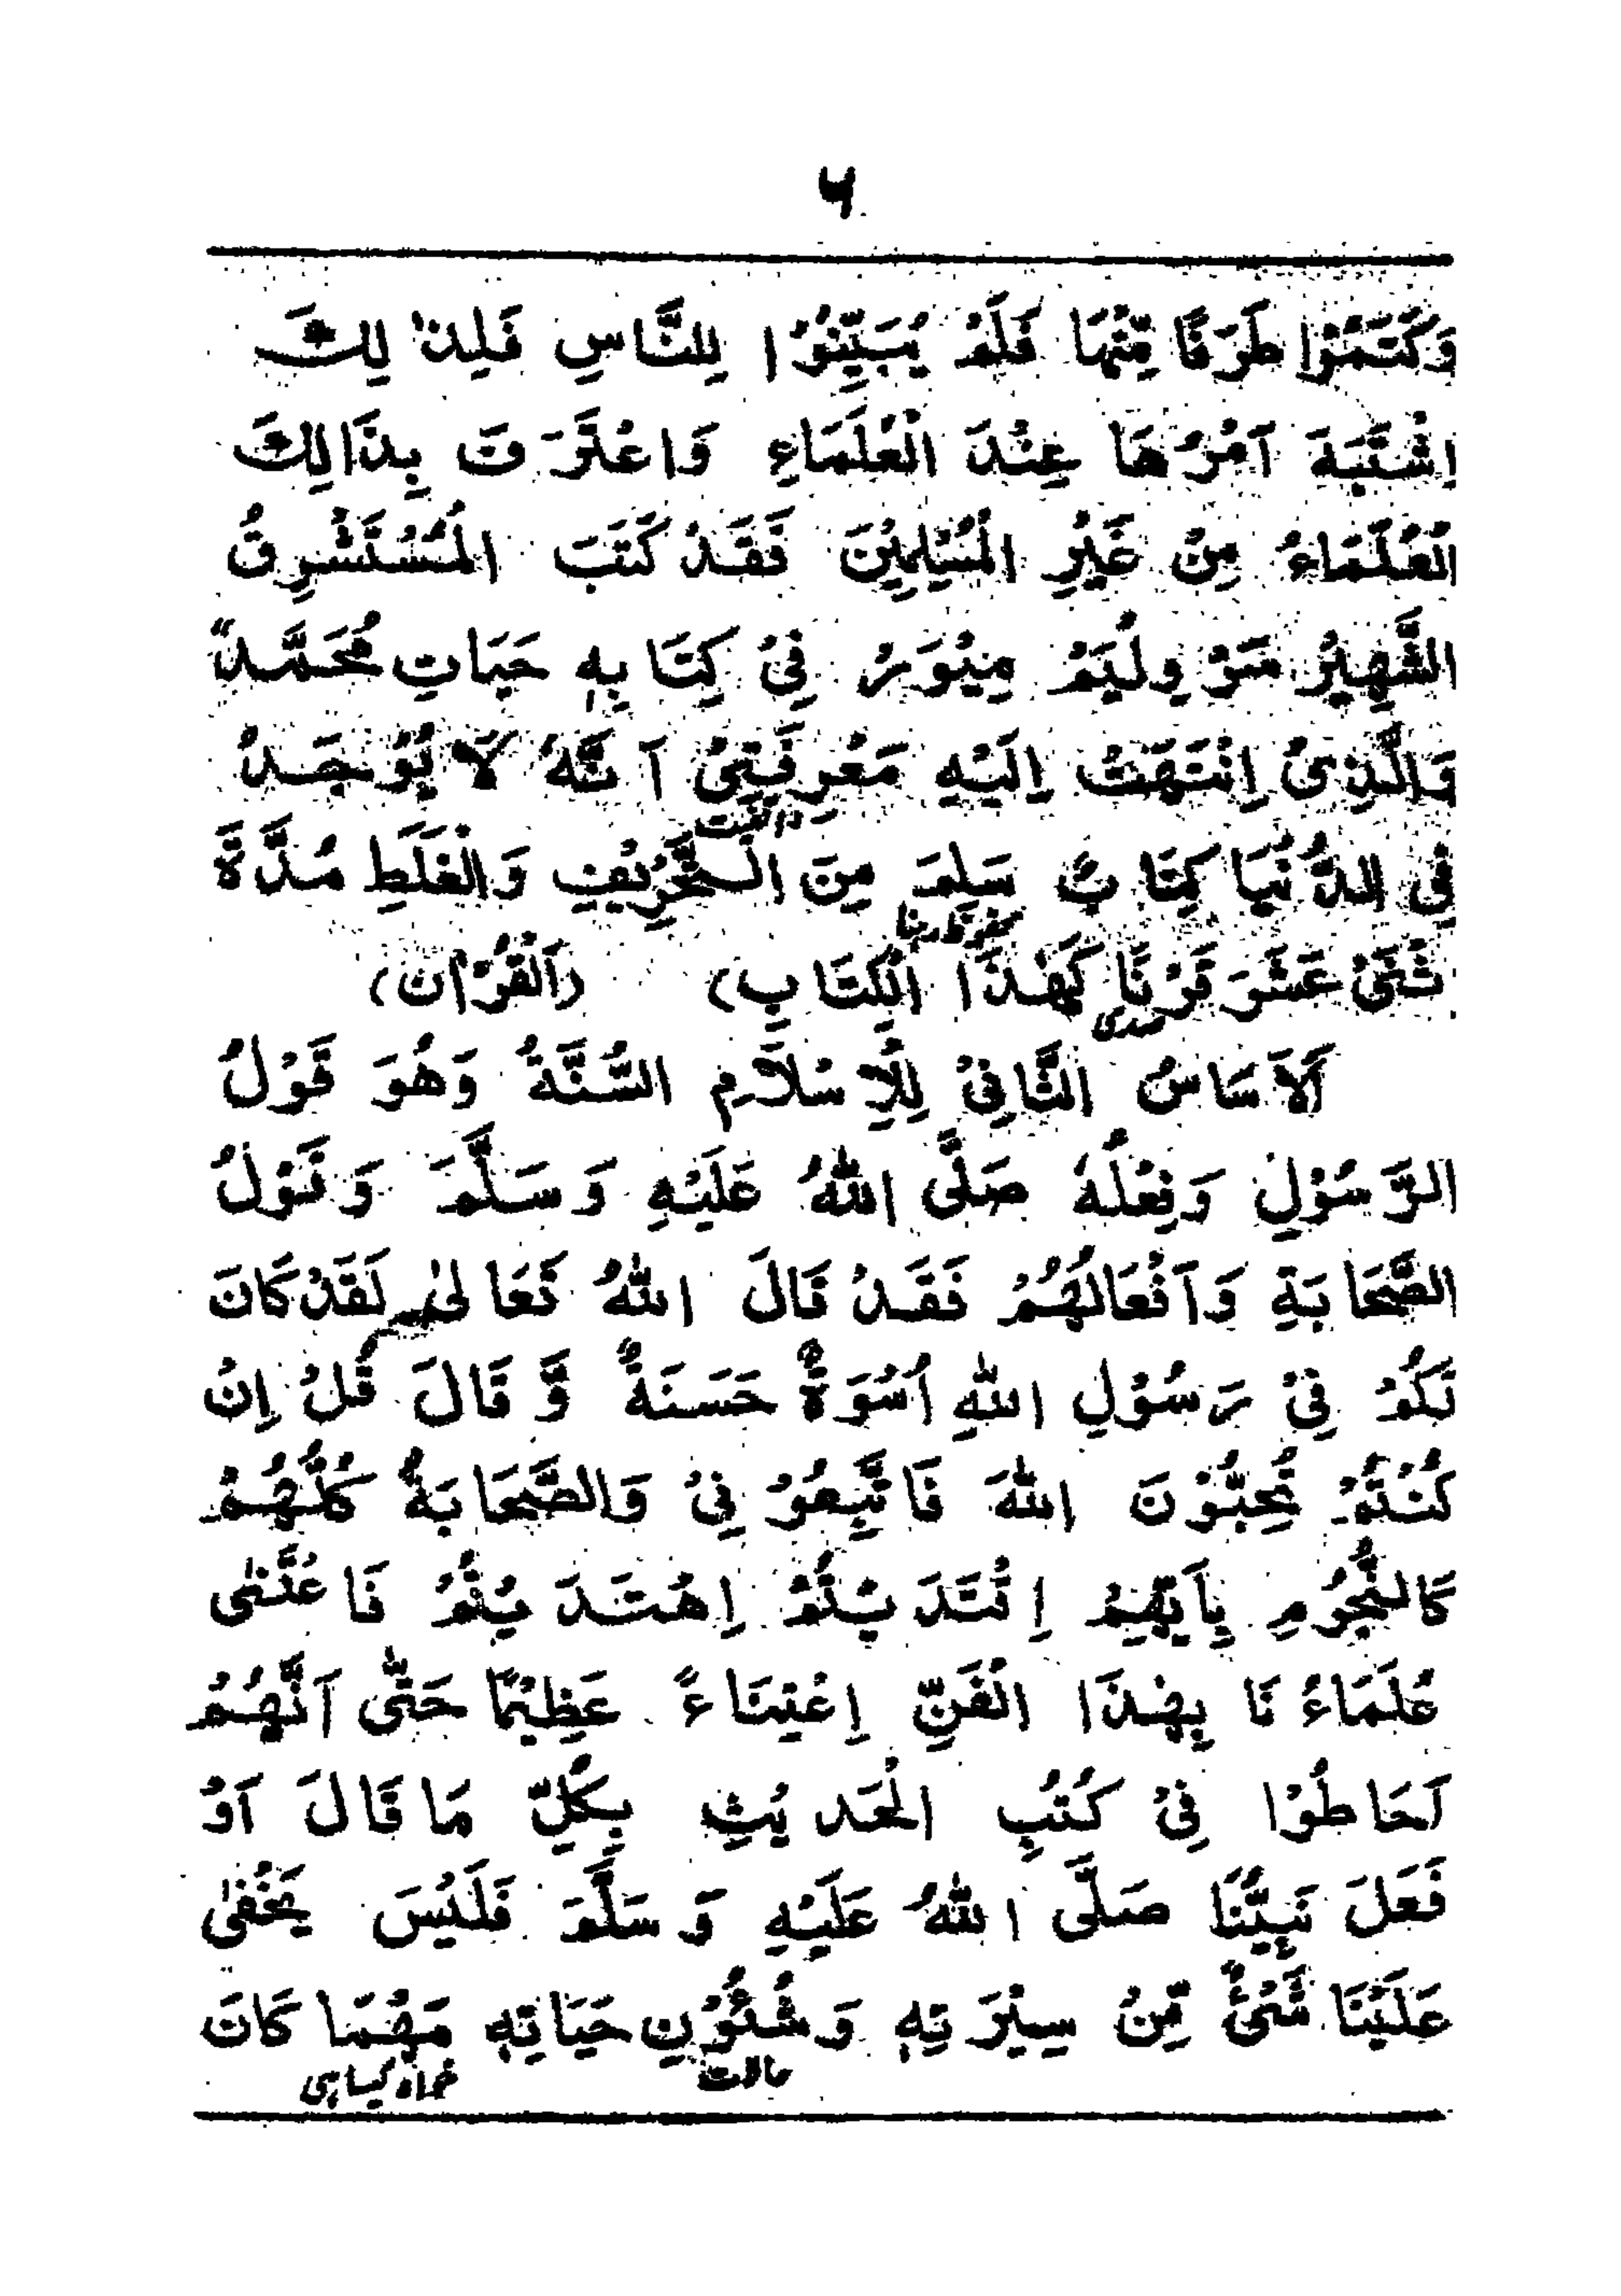 ۶
وَكَتَمُوْا طَرَفًا مِّنْهَا فَلَمْ يُبَيِّنُوْا لِلنَّاسِ فَلِذٰلِكَ
اِشْتَبَهَ اَمْرُهَا عِنْدَ الْعُلَمَاءِ وَاعْتَرَفَ بِذَالِكَ
الْعُلَمَاءُ مِنْ غَيْرِ الْمُسْلِمِيْنَ فَقَدْ كَتَبَ الْمُسْتَشْرِقُ
الشَّهِيْرُ سَرْ وِلْيَمْ مِيْوَرْ فِيْ كِتَابِهٖ حَيَاتِ مُحَمَّدٍ"
وَالَّذِيْ اِنْتَهَتْ اِلَيْهِ مَعْرِفَتِيْ اَنَّهُ لَا يُوْجَدُ
فِي الدُّنْيَا كِتَابٌ سَلِمَ مِنَ التَّحْرِيْفِ وَالْغَلَطِ مُدَّةَ
ثْنَيْ عَشَرَ قَرْنًا كَهٰذَا الْكِتَابِ) (اَلْقُرْاٰن)
صدی
اَلْاَسَاسُ الثَّانِيْ لِلْاِسْلَامِ السُّنَّةُ وَهُوَ قَوْلُ
الرَّسُوْلِ وَفِعْلُهٗ صَلَّى اللّٰهُ عَلَيْهِ وَسَلَّمَ وَقَوْلُ
الصَّحَابَةِ وَاَفْعَالُهُمْ فَقَدْ قَالَ اللّٰهُ تَعَالٰى لَقَدْ كَانَ
لَكُمْ فِيْ رَسُوْلِ اللّٰهِ اُسْوَةٌ حَسَنَةٌ وَّقَالَ قُلْ اِنْ
كُنْتُمْ تُحِبُّوْنَ اللّٰهَ فَاتَّبِعُوْنِيْ وَالصَّحَابَةُ كُلُّهُمْ
كَالنُّجُوْمِ بِاَيِّهِمْ اِقْتَدَيْتُمْ اِهْتَدَيْتُمْ فَاعْتَنٰى
عُلَمَاءُنَا بِهٰذَا الْفَنِّ اِعْتِنَاءً عَظِيْمًا حَتّٰى اَنَّهُمْ
اَحَاطُوْا فِيْ كُتُبِ الْحَدِيْثِ بِكُلِّ مَا قَالَ اَوْ
فَعَلَ نَبِيُّنَا صَلَّى اللّٰهُ عَلَيْهِ وَسَلَّمَ فَلَيْسَ يَخْفٰى
عَلَيْنَا شَيْءٌ مِّنْ سِيْرَتِهٖ وَشُئُوْنِ حَيَاتِهٖ مَهْمَا كَانَ
حالات